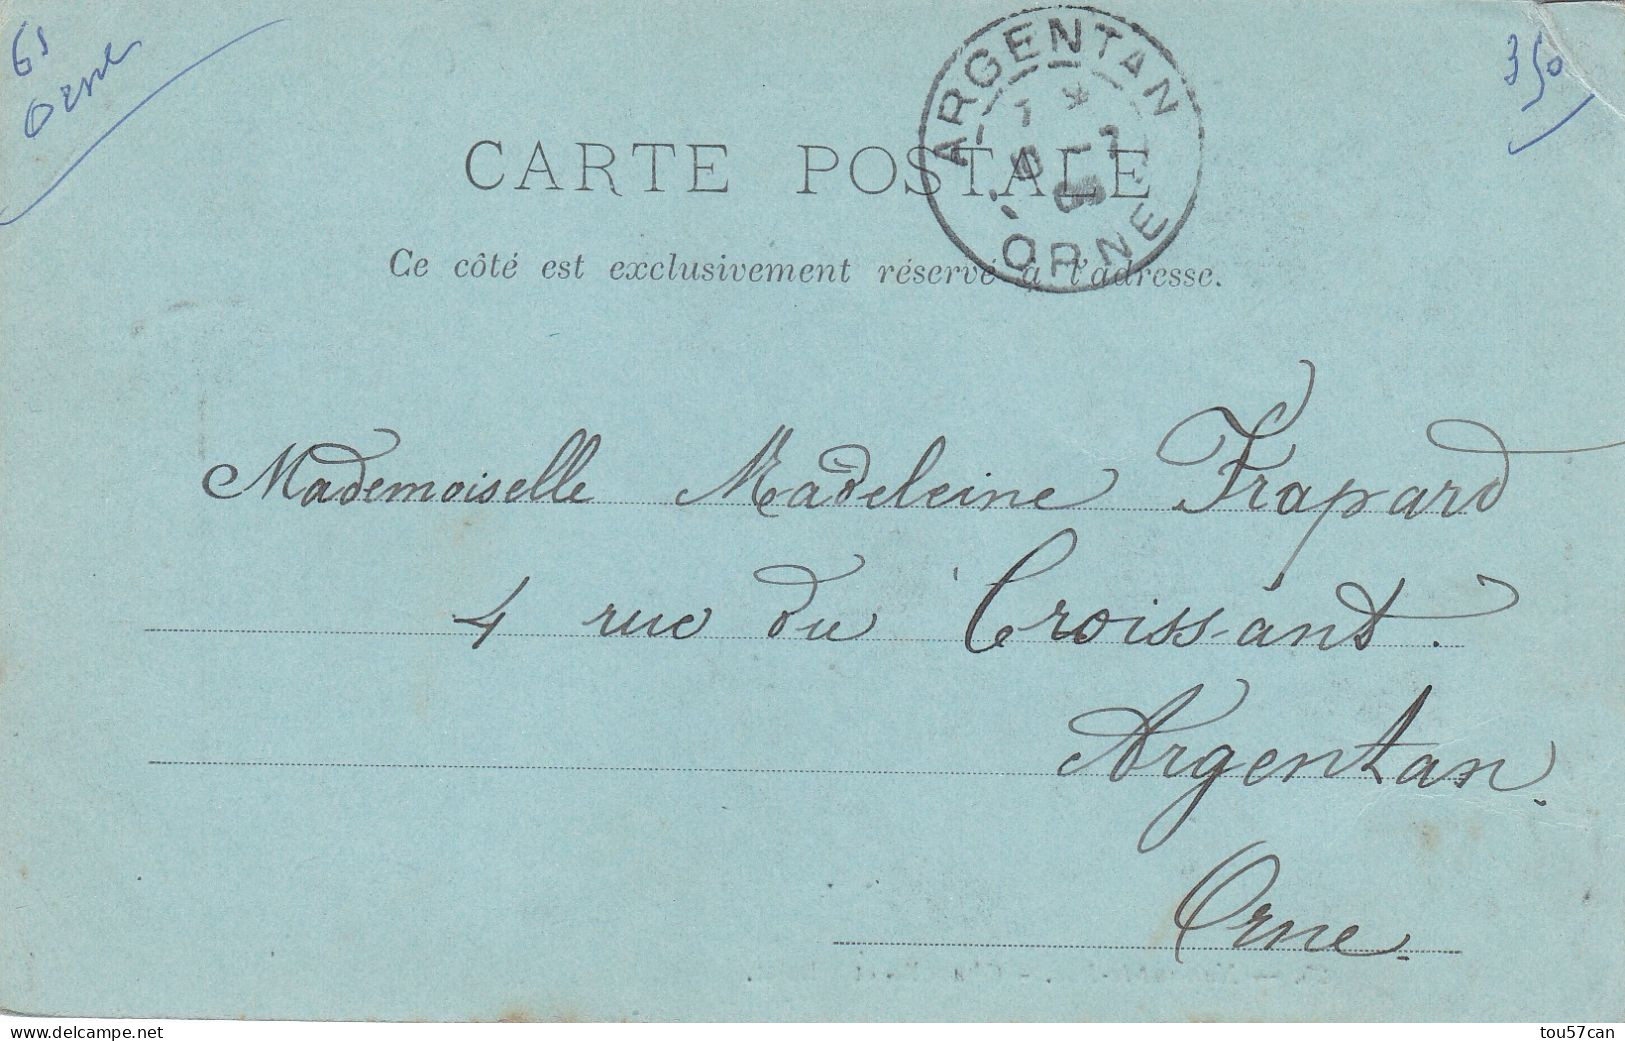 61
Orne
350
ARGENTAN
ORNE
CARTE POSTALE
Ce côté est exclusivement réservé à l'adresse.
Mademoiselle Madeleine Frapard
4 rue du Croissant.
Argentan.
Orne.
delcampe.net
tou57can